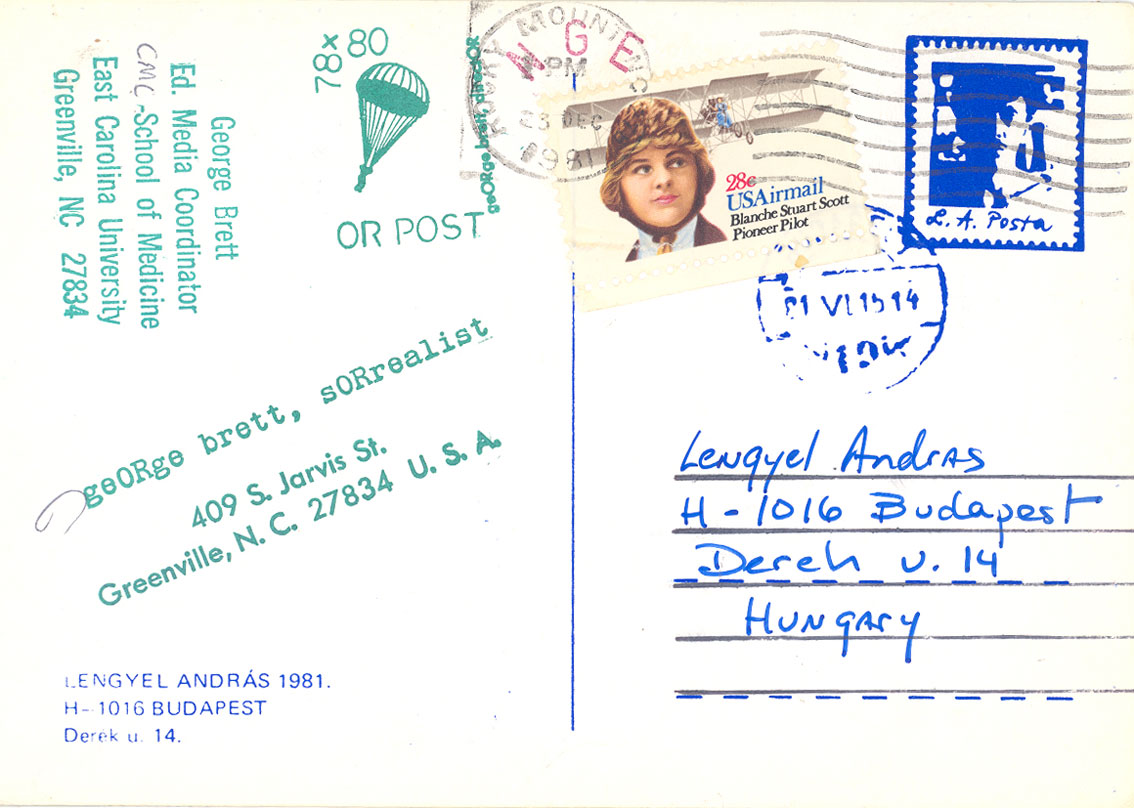 George Brett
Ed. Media Coordinator
CMC - School of Medicine
East Carolina University
Greenville, NC 27834
78 x 80
OR POST
geORge brett, sORrealist
409 S. Jarvis St.
Greenville, N. C. 27834 U. S. A.
LENGYEL ANDRÁS 1981.
H-1016 BUDAPEST
Derék u. 14.
MOUNT
N G E
PM
DEC
1981
28c
USAirmail
Blanche Stuart Scott
Pioneer Pilot
L. A. Posta
81 VI 15 14
Lengyel András
H-1016 Budapest
Derek u. 14
Hungary